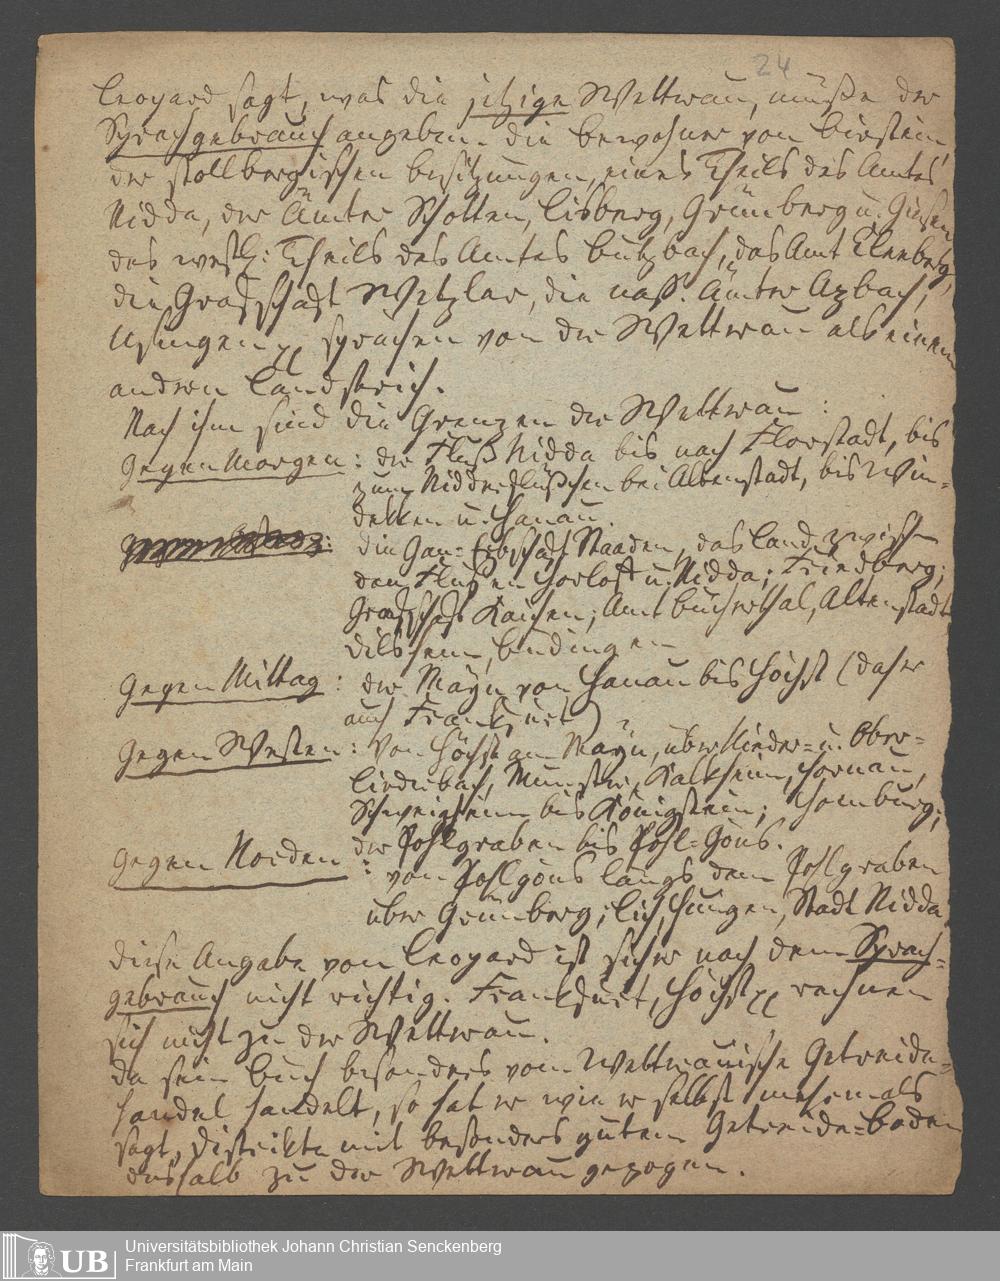 24
Leopard sagt, was die jetzige Wettrau, müße der
Sprachgebrauch angeben. die bewohner von birstein,
der stollbergischen besitzungen, eines Theils des Amtes
Nidda, der Ämter Schotten, Lisberg, Grünberg u. Gießen
des westl: Theils des Amtes butzbach, das Amt Cleeberg,
die Grafschaft Wetzlar, die naß. Ämter Azbach,
Usingen sprächen von der Wettrau als einem
andren Landstrich.
Nach ihm sind die Grenzen der Wettrau :
Gegen Morgen : der Fluß Nidda bis nach Florstadt, bis
zum Nidderflüßchen bei Altenstadt, bis Win-
decken u. Hanau.
die Gan-Erbschaft Staaden, das land zwischen
den Flüßen Horloff u. Nidda; Friedberg;
Grafschaft Kaichen; Amt bücherthal, Altenstadt
büdingen
Gegen Mittag : der Mayn von Hanau bis Höchst (daher
auch Frankfurt)
Gegen Westen : Von Höchst am Mayn, über Nieder- u. Ober-
liederbach, Münster, Kalkheim, Hornau,
Schneidheim bis Königstein; Homburg;
der Pohlgraben bis Pohl-Göns.
Gegen Norden : von Pohlgöns längs dem Pohlgraben
über Grünberg; lich, Hungen, Stadt Nidda
diese Angabe von Leopard ist sicher nach dem Sprach-
gebrauch nicht richtig. Frankfurt, Höchst rechnen
sich nicht zu der Wettrau.
da sein buch besonders vom Wettrauische Getreide-
handel handelt, so hat er wie er selbst mehrmals
sagt, distrikte mit besonders gutem Getreide-boden
deshalb zu der Wettrau gezogen.
UB
Universitätsbibliothek Johann Christian Senckenberg
Frankfurt am Main